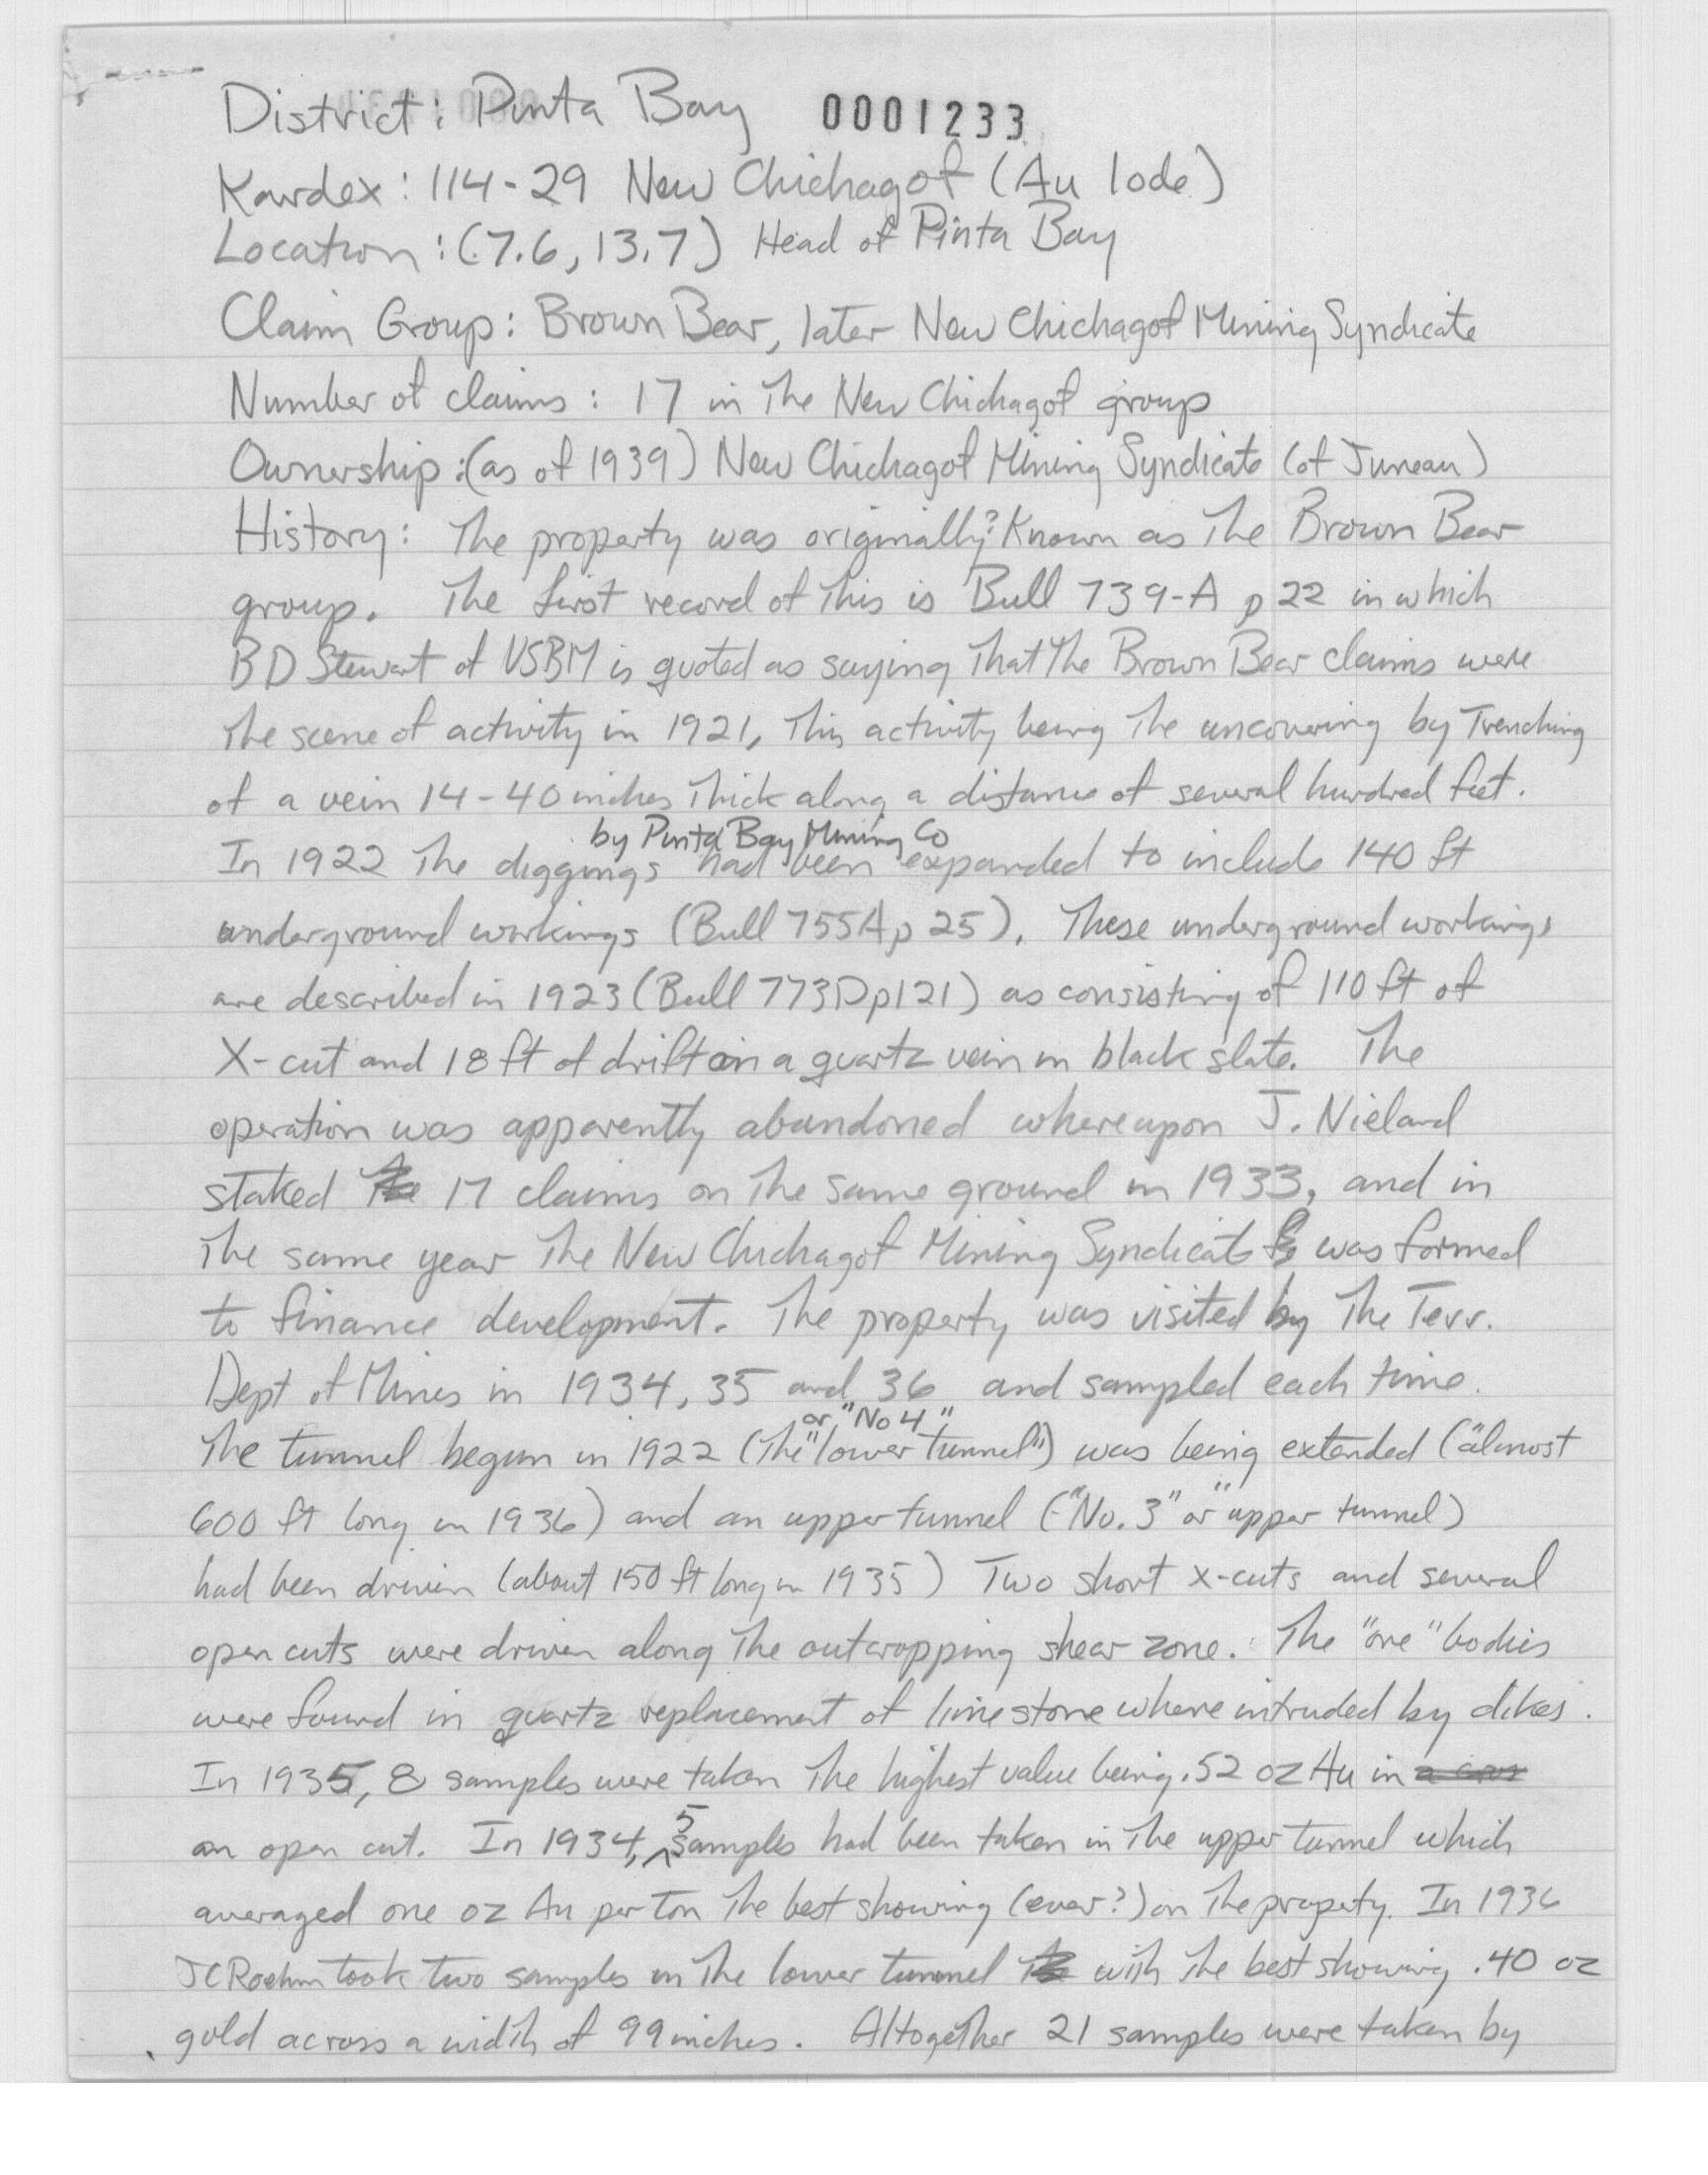 District: Pinta Bay 0001233
Kardex: 114-29 New Chichagof (Au lode)
Location: (7.6, 13.7) Head of Pinta Bay
Claim Group: Brown Bear, later New Chichagof Mining Syndicate
Number of claims: 17 in the New Chichagof group
Ownership: (as of 1939) New Chichagof Mining Syndicate (of Juneau)
History: The property was originally? Known as the Brown Bear
group. The first record of this is Bull 739-A p 22 in which
BD Stewart of USBM is quoted as saying that the Brown Bear claims were
the scene of activity in 1921, this activity being the uncovering by trenching
of a vein 14-40 inches thick along a distance of several hundred feet.
by Pinta Bay Mining Co
In 1922 the diggings had been expanded to include 140 ft
underground workings (Bull 755A p 25). These underground workings
are described in 1923 (Bull 773D p121) as consisting of 110 ft of
X-cut and 18 ft of drift on a quartz vein in black slate. The
operation was apparently abandoned whereupon J. Nieland
staked the 17 claims on the same ground in 1933, and in
the same year the New Chichagof Mining Syndicate was formed
to finance development. The property was visited by the Terr.
Dept of Mines in 1934, 35 and 36 and sampled each time.
or "No 4"
The tunnel begun in 1922 (the "lower tunnel") was being extended ("almost
600 ft long in 1936) and an upper tunnel ("No. 3" or "upper tunnel)
had been driven (about 150 ft long in 1935) Two short x-cuts and several
open cuts were driven along the outcropping shear zone. The "ore" bodies
were found in quartz replacement of limestone where intruded by dikes.
In 1935, 8 samples were taken the highest value being .52 oz Au in
an open cut. In 1934, 5 samples had been taken in the upper tunnel which
averaged one oz Au per ton the best showing (ever?) on the property. In 1936
JC Roehm took two samples in the lower tunnel with the best showing .40 oz
gold across a width of 99 inches. Altogether 21 samples were taken by